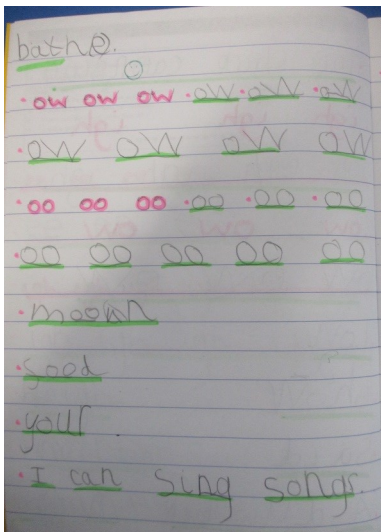 bathe.
ow ow ow ow ow ow
ow ow ow ow
oo oo oo oo oo oo
oo oo oo oo oo
good
your.
I can sing songs.